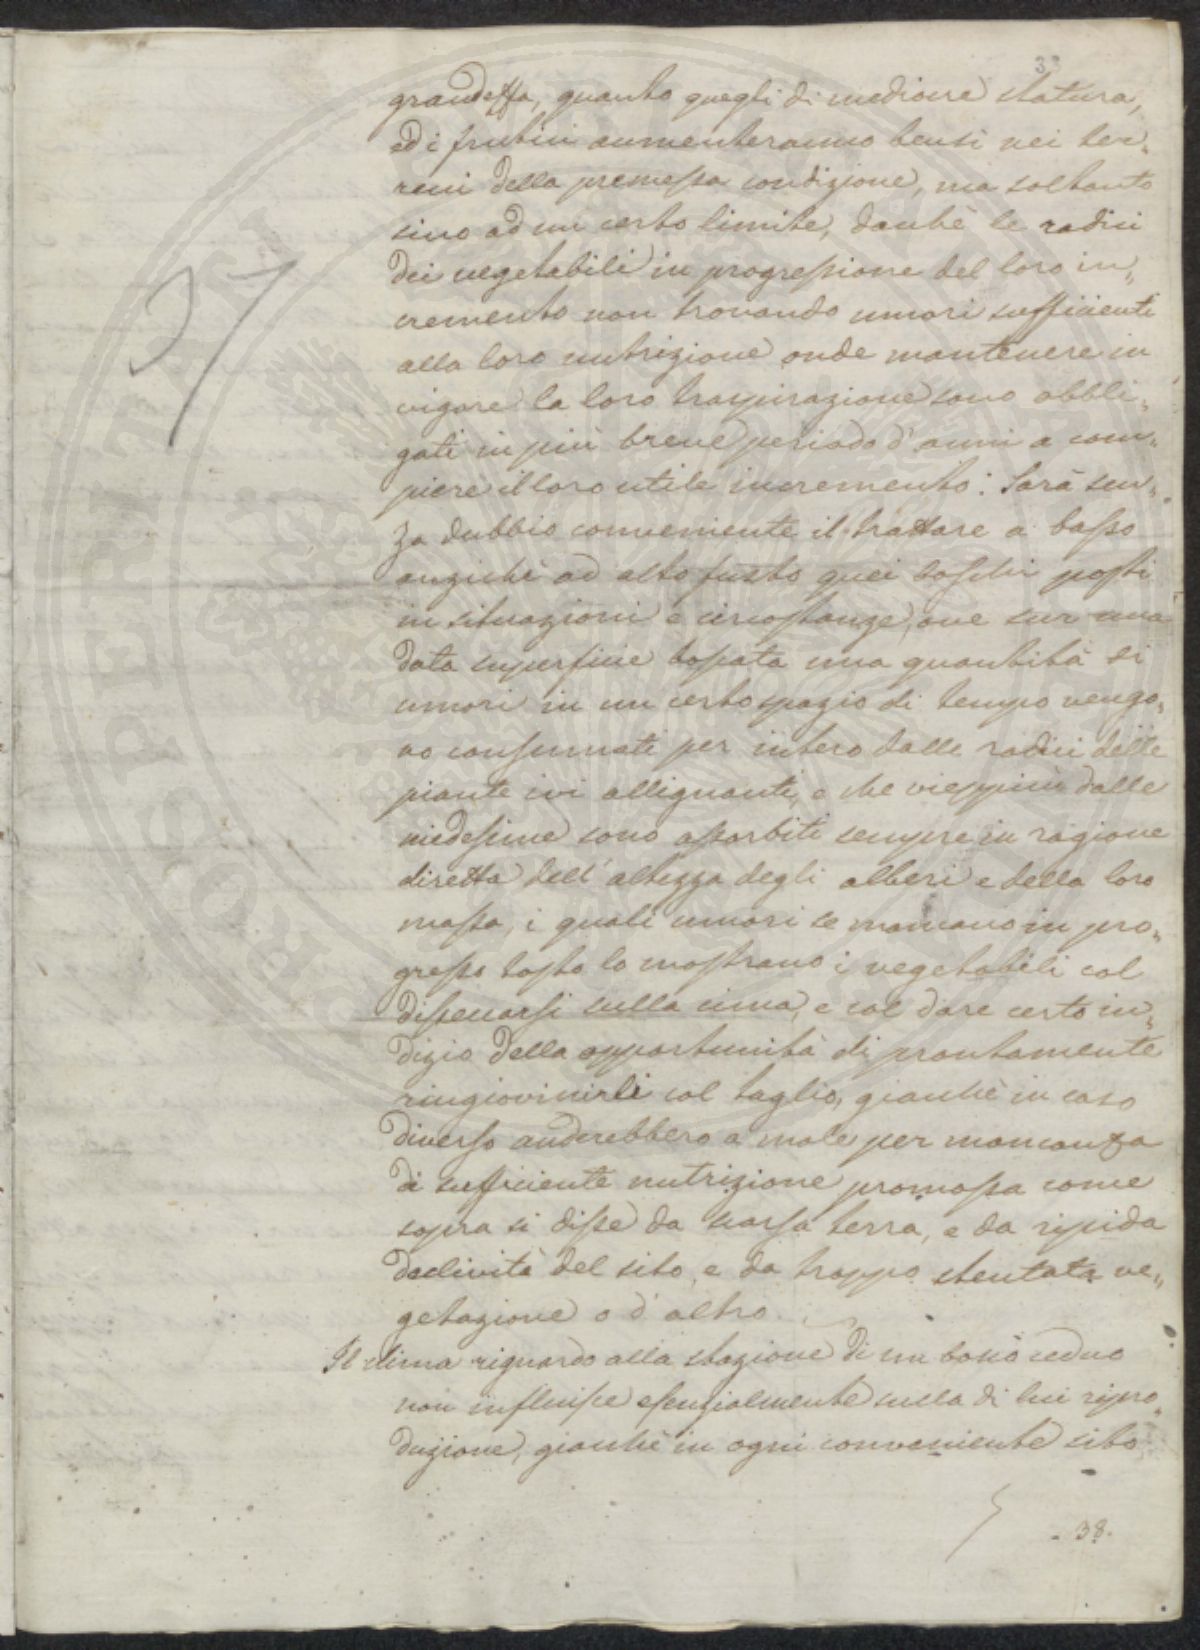 33
grandezza, quanto quegli di mediocre statura,
ed i frutici aumenteranno bensì nei ter„
reni della premessa condizione, ma soltanto
sino ad un certo limite, dacchè le radici
dei vegetabili in progressione del loro in„
cremento non trovando umori sufficienti
alla loro nutrizione onde mantenere in
vigore la loro traspirazione sono obbli„
gati in più breve periodo d'anni a com„
piere il loro utile incremento. Sarà sen„
za dubbio conveniente il trattare a basso
anzichè ad alto fusto quei boschi posti
in situazioni e circostanze, ove sur una
data superficie boscata una quantità di
umori in un certo spazio di tempo vengo„
no consumati per intero dalle radici delle
piante ivi allignanti, e che vieppiù dalle
medesime sono assorbiti sempre in ragione
diretta dell'altezza degli alberi e della loro
massa, i quali umori se mancano in pro„
gresso tosto lo mostrano i vegetabili col
disseccarsi sulla cima, e col dare certo in„
dizio della opportunità di prontamente
ringiovinirli col taglio, giacchè in caso
diverso anderebbero a male per mancanza
di sufficiente nutrizione promossa come
sopra si disse da scarsa terra, e da ripida
declività del sito, e da troppo stentata ve„
getazione o d'altro.
Il clima riguardo alla stazione di un bosco ceduo
non influisce essenzialmente sulla di lui ripro„
duzione, giacchè in ogni conveniente sito
38.